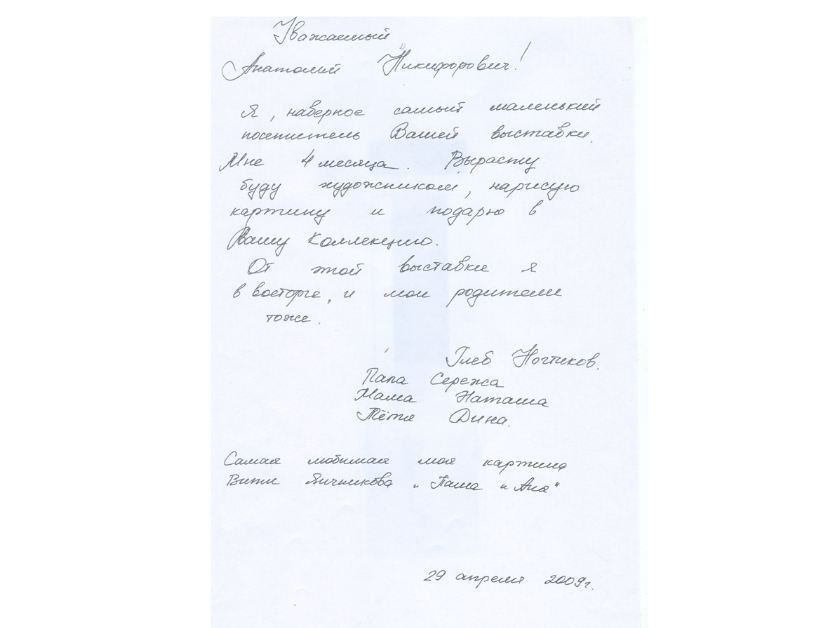 Уважаемый
Анатолий Никифорович!
Я, наверное самый маленький
посетитель Вашей выставки.
Мне 4 месяца. Вырасту
буду художником, нарисую
картину и подарю в
Вашу Коллекцию.
От этой выставки я
в восторге, и мои родители
тоже.
Глеб Ногтиков.
Папа Сережа
Мама Наташа
Тётя Дина.
Самая любимая моя картина
Вити Яичникова „Паша и Аня"
29 апреля 2009г.